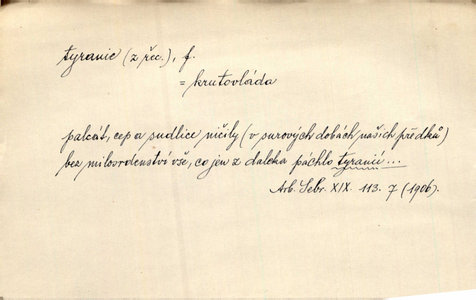 tyranie (z řec.), f.
= krutovláda
palcát, cep a sudlice ničily (v surových dobách našich předků)
bez milosrdenství vše, co jen z daleka páchlo tyranií...
Arb. Sebr. XIX. 113. 7 (1906).